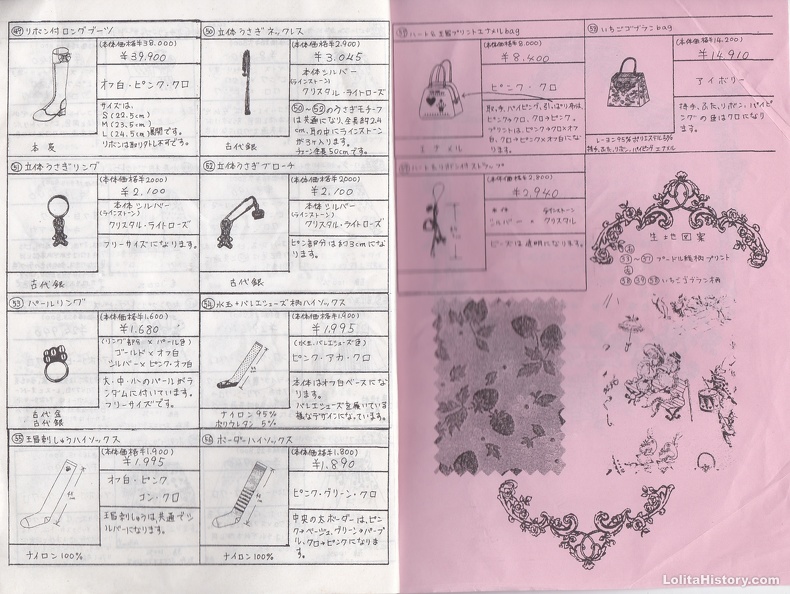 ㊾ リボン付ロングブーツ
(本体価格¥38,000)
¥39,900
オフ白・ピンク・クロ
サイズは、
S(22.5cm)
M(23.5cm)
L(24.5cm)展開です。
リボンは取り外し不可です。
本革
㊿ 立体うさぎネックレス
(本体価格¥2,900)
¥3,045
本体シルバー
(ラインストーン)
クリスタル・ライトローズ
㊿~52のうさぎモチーフ
は共通になり、全長約2.4
cm、耳の中にラインストーン
が3ヶ入ります。
チェーン全長50cmです。
古代銀
51 立体うさぎリング
(本体価格¥2,000)
¥2,100
本体シルバー
(ラインストーン)
クリスタル・ライトローズ
フリーサイズになります。
古代銀
52 立体うさぎブローチ
(本体価格¥2,000)
¥2,100
本体シルバー
(ラインストーン)
クリスタル・ライトローズ
ピン部分は約3cmにな
ります。
古代銀
53 パールリング
(本体価格¥1,600)
¥1,680
(リング部分×パール色)
ゴールド×オフ白
シルバー×ピンク・オフ白
大・中・小のパールがラ
ンダムに付いています。
フリーサイズです。
古代金
古代銀
54 水玉+バレエシューズ柄ハイソックス
(本体価格¥1,900)
¥1,995
(水玉、バレエシューズ色)
ピンク・アカ・クロ
本体はオフ白ベースにな
ります。
バレエシューズを履いている
様なデザインになっています。
ナイロン95%
ポリウレタン5%
55 王冠刺しゅうハイソックス
(本体価格¥1,900)
¥1,995
オフ白・ピンク
コン・クロ
王冠刺しゅうは、共通でシ
ルバーになります。
ナイロン100%
56 ボーダーハイソックス
(本体価格¥1,800)
¥1,890
ピンク・グリーン・クロ
中央の太ボーダーは、ピン
ク→ベージュ、グリーン→パープ
ル、クロ→ピンクになりま
す。
ナイロン100%
ハート&王冠プリントエナメルbag
(本体価格¥8,000)
¥8,400
ピンク・クロ
エナメル
いちごゴブランbag
(本体価格¥14,200)
¥14,910
アイボリー
持手、ふた、リボン、パイピ
ングの色はクロになり
ます。
レーヨン95% ポリエステル5%
持手、ふた、リボン、パイピング エナメル
(本体価格¥2,800)
¥2,940
本体
ラインストーン
シルバー × クリスタル
ビーズは透明になります。
生地図案
プードル絵柄プリント
いちごゴブラン柄
LolitaHistory.com